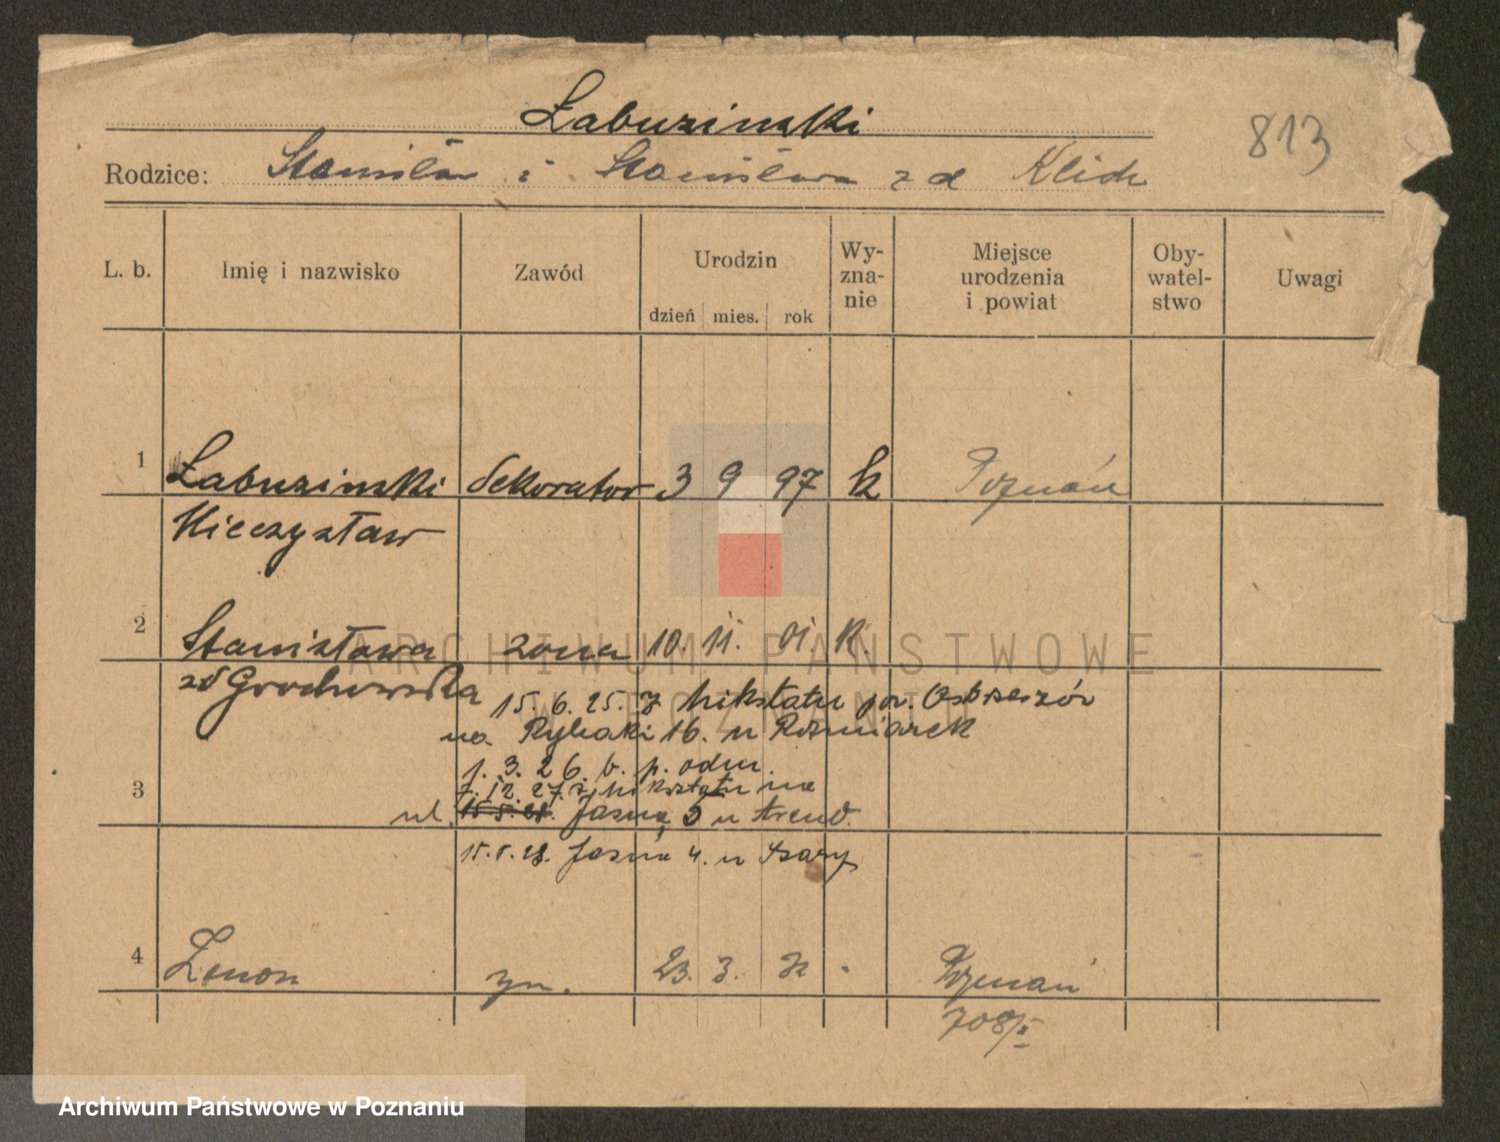 Łabuzinski
813
Rodzice: Stanisław i Stanisława z d Klich
L. b. Imię i nazwisko Zawód Urodzin dzień mies. rok Wy-zna-nie Miejsce urodzenia i powiat Oby-watel-stwo Uwagi
1 Łabuzinski dekorator 3 9 97 k Poznań
Mieczysław
2 Stanisława żona 10. 11. 01 K.
zd Grochowska
15. 6. 25. z Mikstatu pow. Ostrzeszów
na Rybaki 16. u Roźmiarek
1. 3. 26. b. p. odm.
7. 12. 27. z Mikstatu na
3 ul. 15.5.28. Jasną 5 u
15.5.28. Jasna 4. u Szary
4 Zenon syn. 23. 3. Poznań
708/II
ARCHIWUM PAŃSTWOWE
W POZNANIU
Archiwum Państwowe w Poznaniu